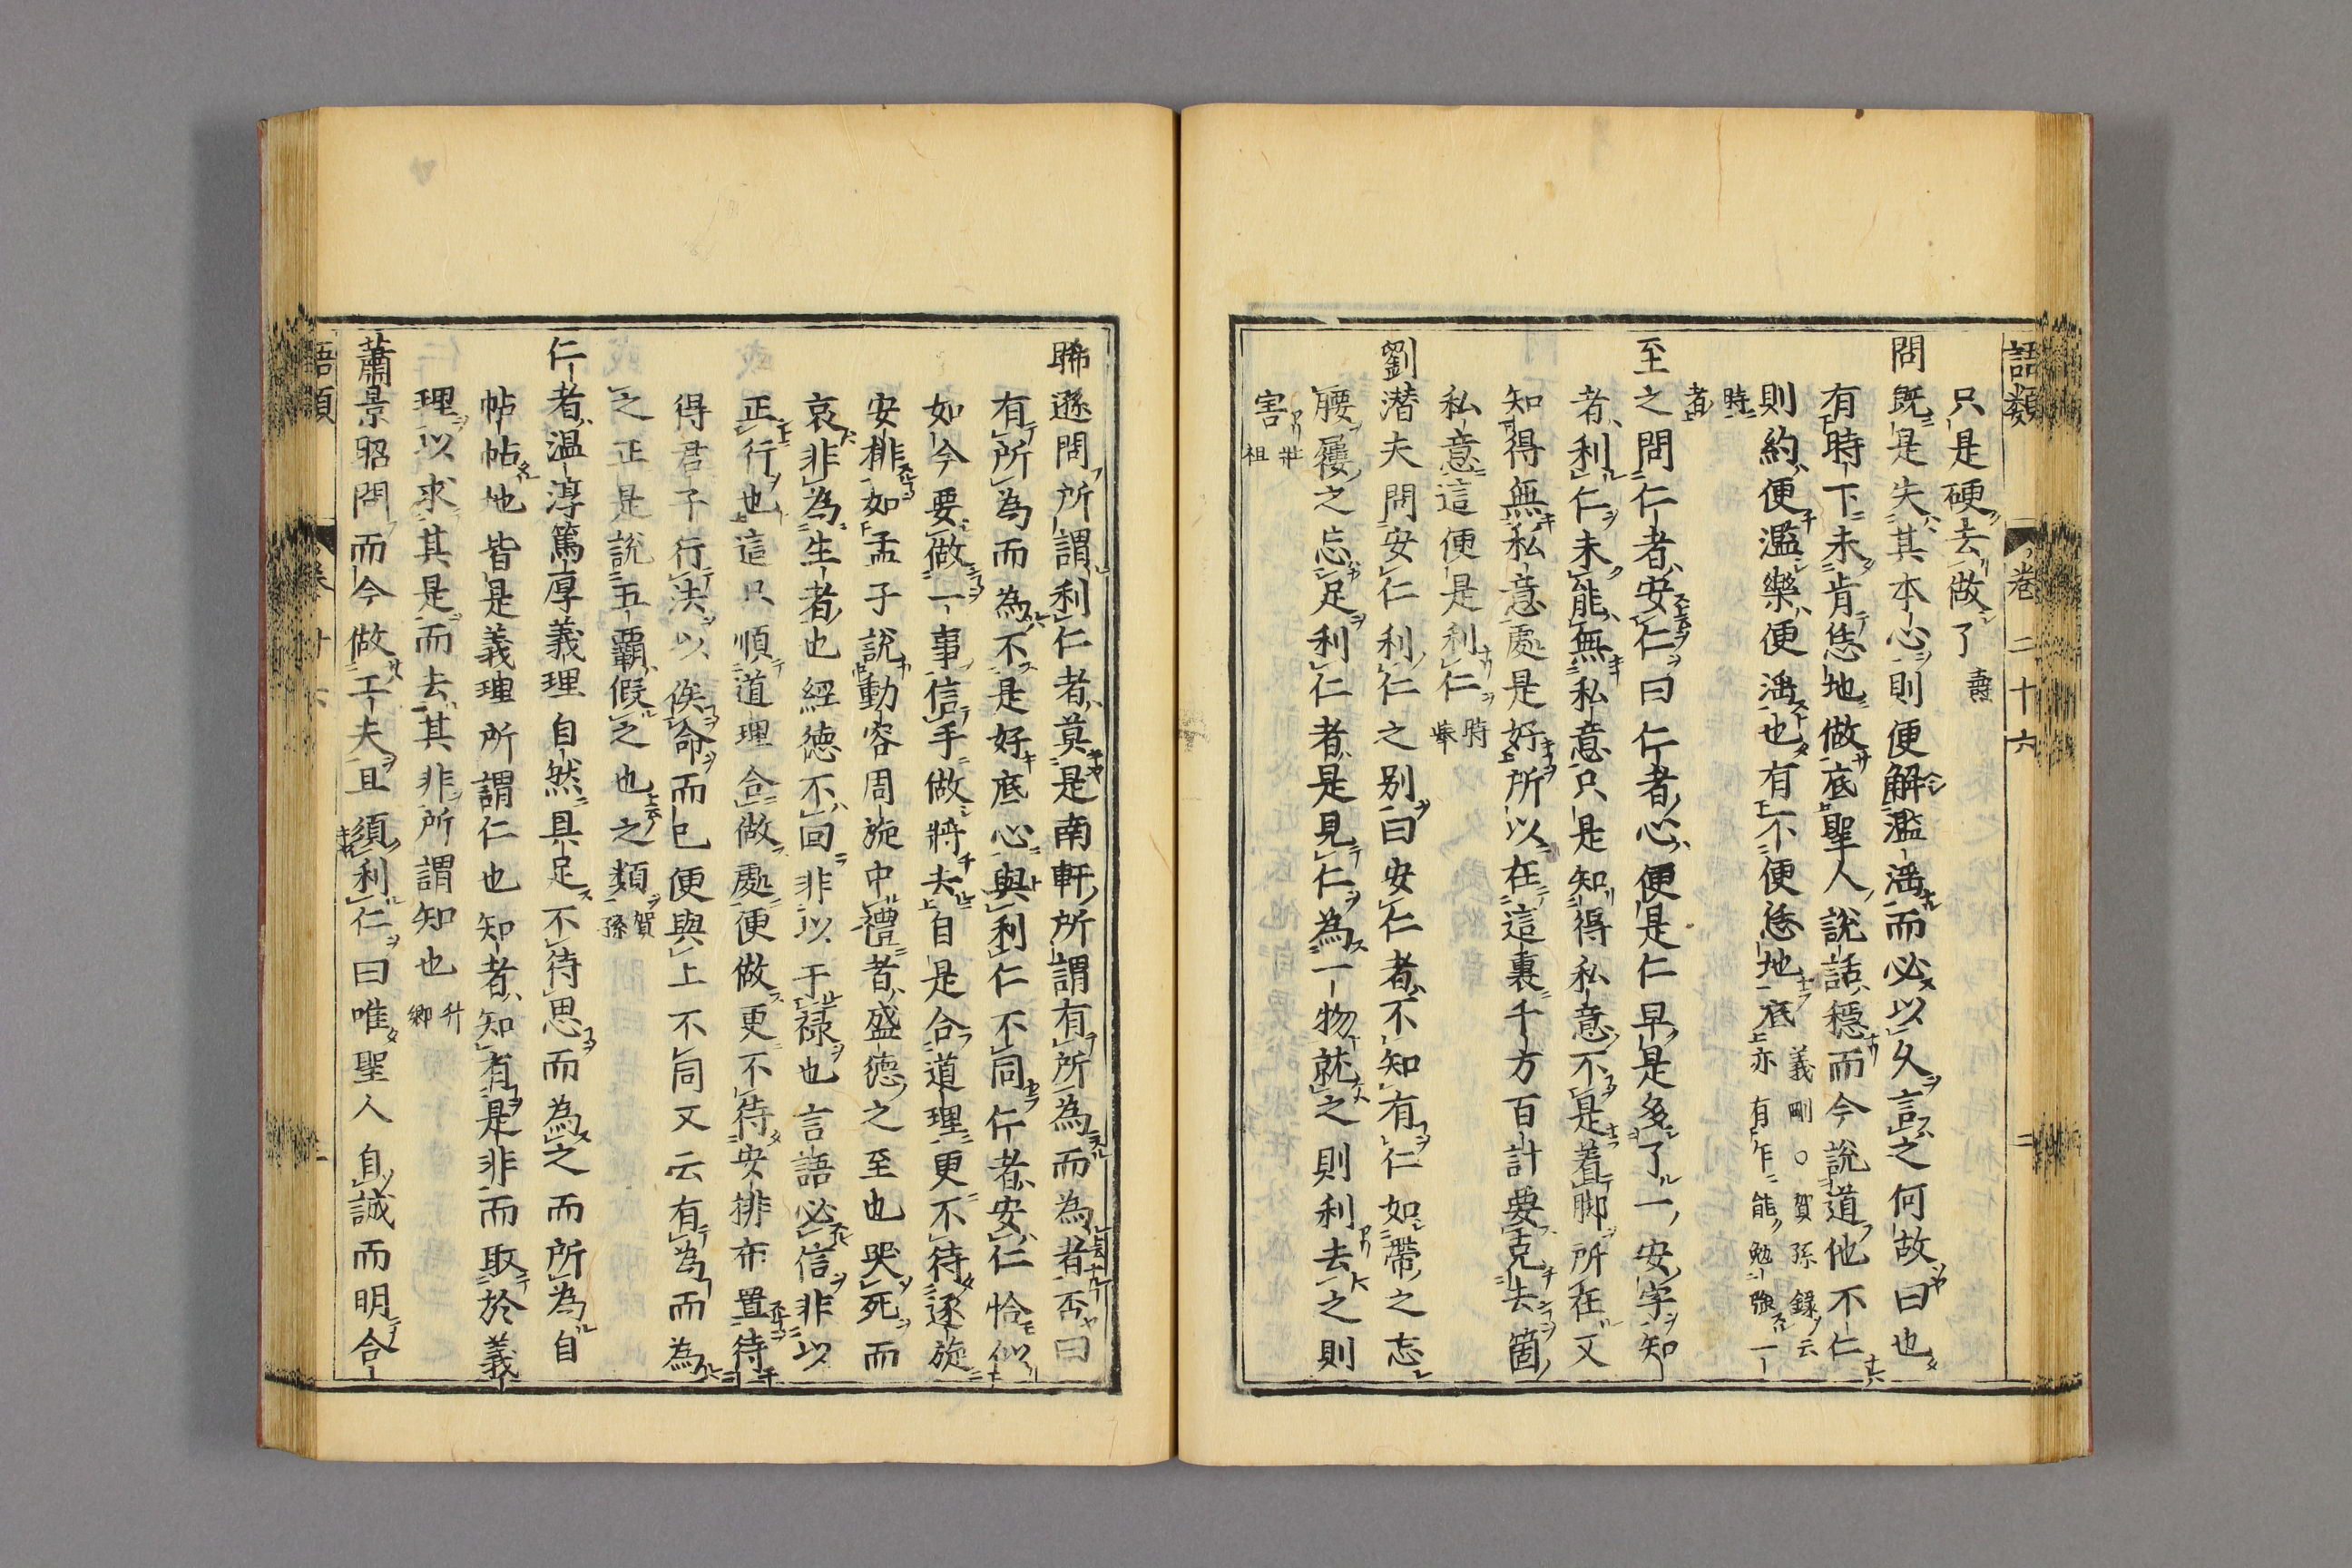 語類 卷二十六 二
只是硬去做了 壽
問既是失其本心則便解濫淫而必以久言之何故曰也
有時下未肯恁地做底聖人說話穩而今說道他不仁
則約便濫樂便淫也有不便恁地底 義剛○賀孫錄云
亦有乍能勉強一
時
者
至之問仁者安仁曰仁者心便是仁早是多了一安字知
者利仁未能無私意只是知得私意不是着脚所在又
知得無私意處是好所以在這裏千方百計要克去箇
私意這便是利仁 時
舉
劉潛夫問安仁利仁之別曰安仁者不知有仁如帶之忘
腰履之忘足利仁者是見仁為一物就之則利去之則
害 壯
祖
晞遜問所謂利仁者莫是南軒所謂有所為而為者否曰
有所為而為不是好底心與利仁不同仁者安仁恰似
如今要做一事信手做將去自是合道理更不待逐旋
安排如孟子說動容周旋中禮者盛德之至也哭死而
哀非為生者也經德不回非以干祿也言語必信非以
正行也這只順道理合做處便做更不待安排布置待
得君子行法以俟命而已便與上不同又云有為而為
之正是說五霸假之也之類 賀
孫
仁者溫淳篤厚義理自然具足不待思而為之而所為自
帖帖地皆是義理所謂仁也知者知有是非而取於義
理以求其是而去其非所謂知也 升
卿
蕭景昭問而今做工夫且須利仁曰唯聖人自誠而明合
語類